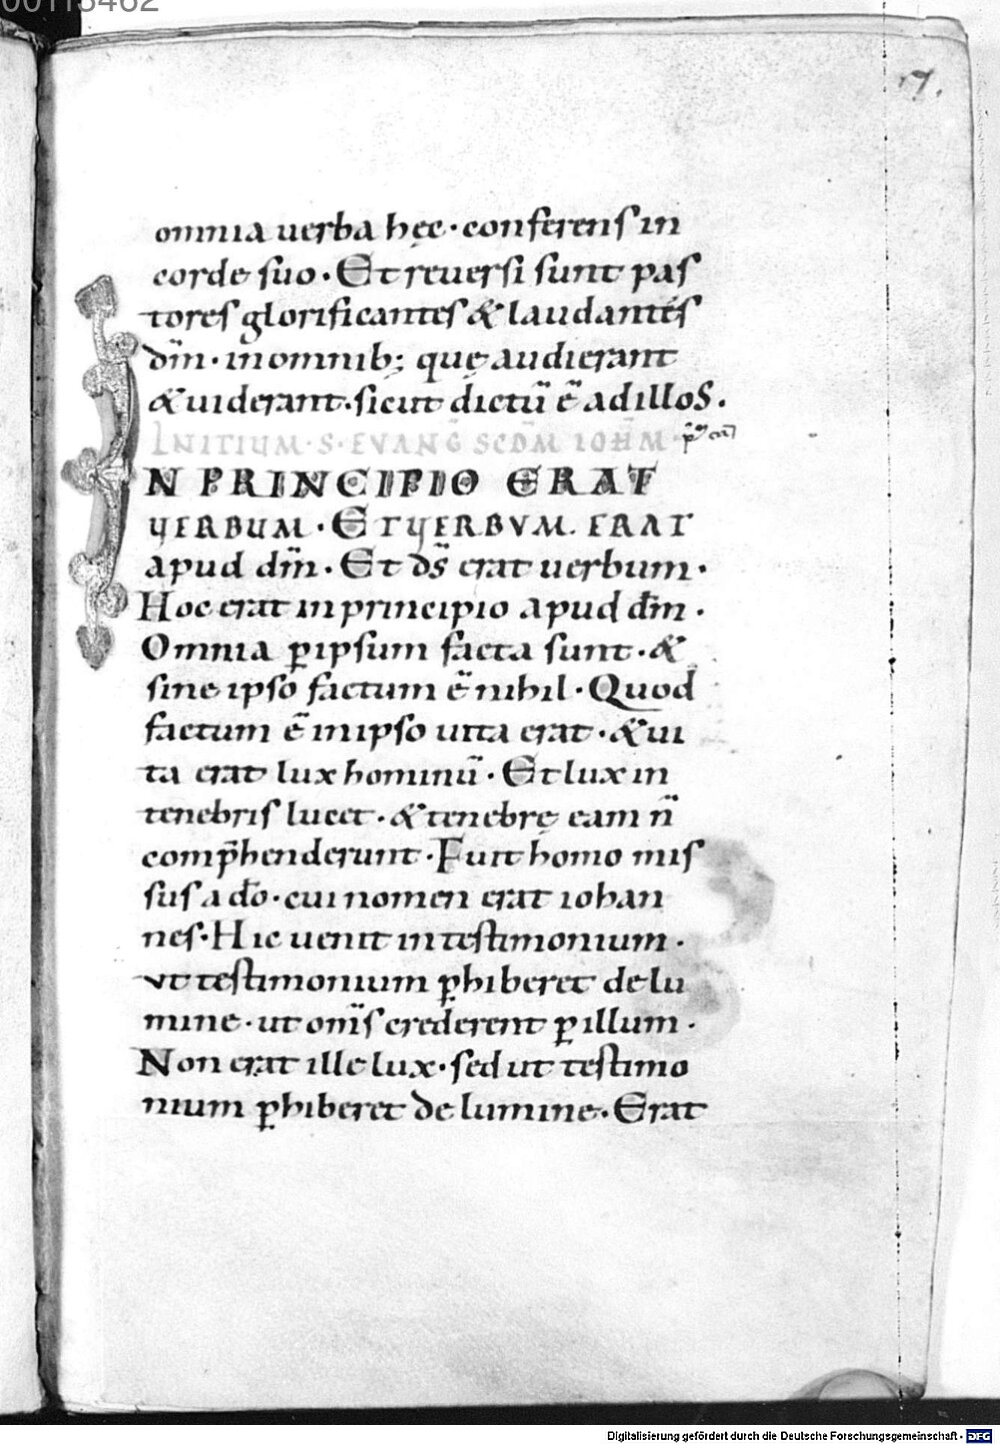 00113462
17.
omnia uerba hęc · conferens in
corde suo · Et reuersi sunt pas
tores glorificantes & laudantes
dm̄ · in omnib; quę audierant
& uiderant · sicut dictū ē ad illos.
INITIUM · S · EVANḠ SCDM̄ IOHM̄
IN PRINCIPIO ERAT
VERBUM · ET VERBVM ERAT
apud dm̄ · Et ds̄ erat uerbum ·
Hoc erat in principio apud dm̄ ·
Omnia ꝑ ipsum facta sunt · &
sine ipso factum ē nihil · Quod
factum ē in ipso uita erat · & ui
ta erat lux hominū · Et lux in
tenebris lucet · & tenebrę eam n̄
comp̄henderunt · Fuit homo mis
sus a dō · cui nomen erat iohan
nes · Hic uenit in testimonium ·
vt testimonium ꝑhiberet de lu
mine · ut om̄s crederent ꝑ illum ·
Non erat ille lux · sed ut testimo
nium ꝑhiberet de lumine · Erat
Digitalisierung gefördert durch die Deutsche Forschungsgemeinschaft - DFG